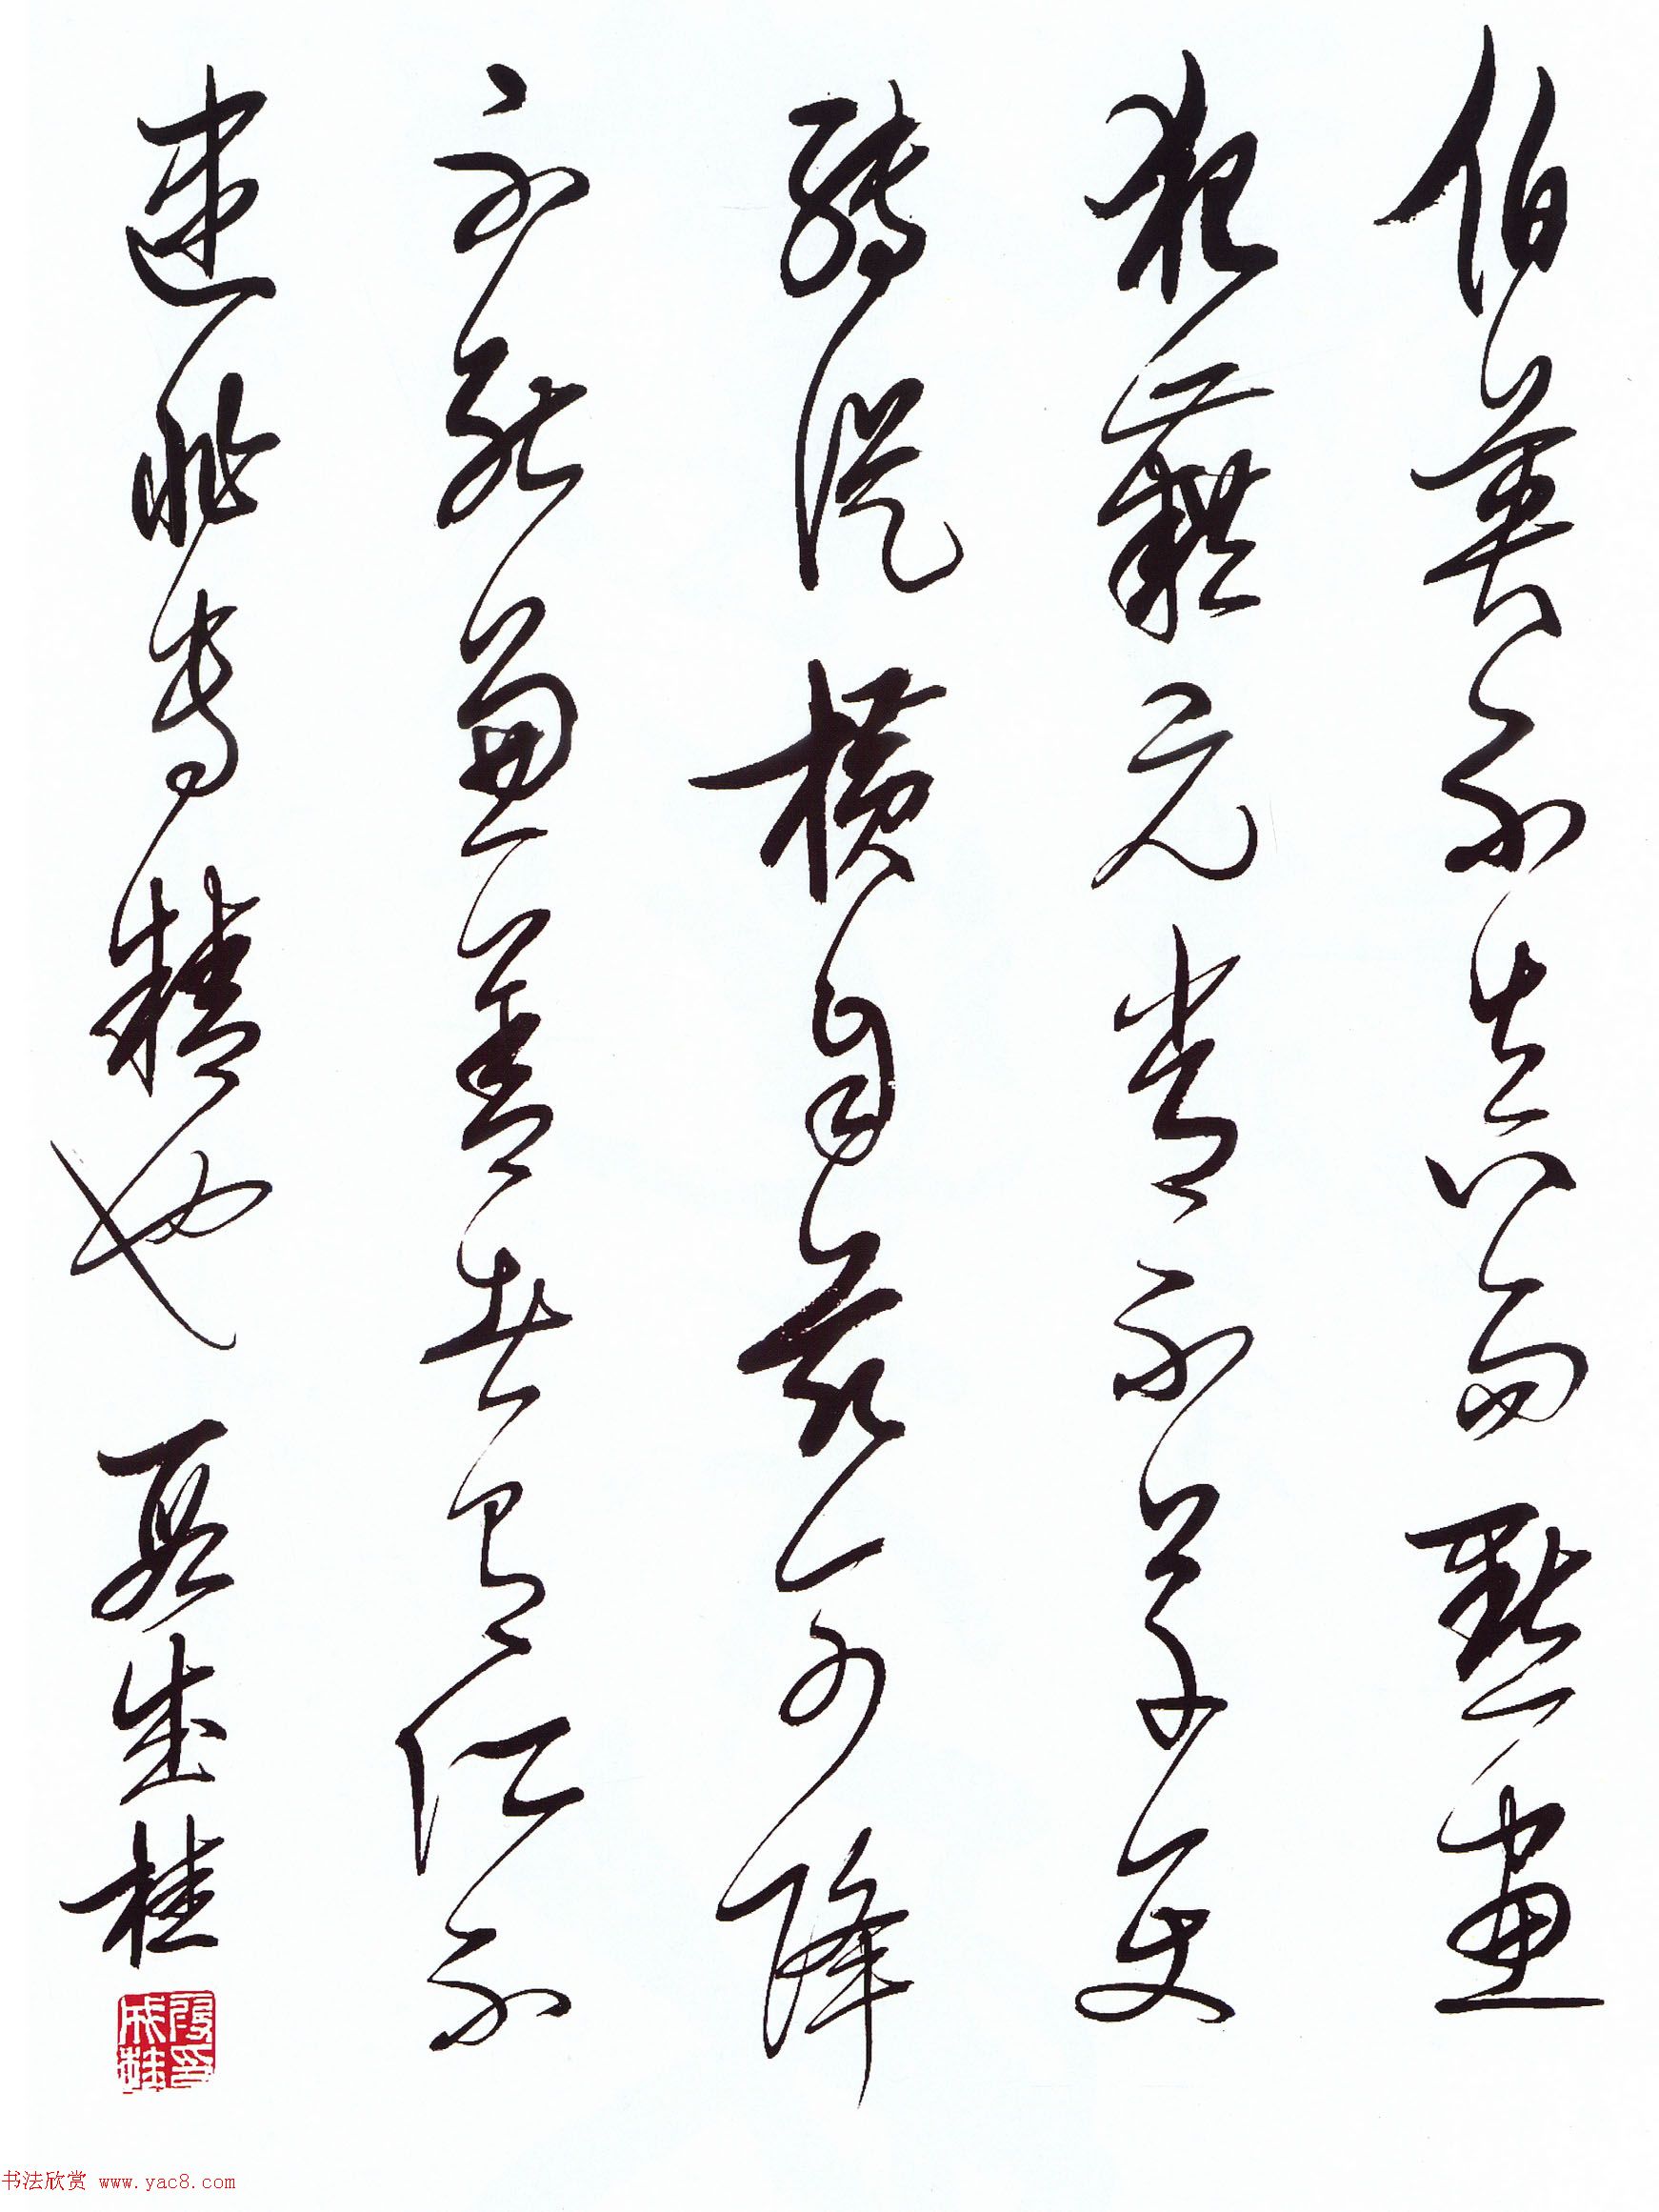 伯英不真而點畫
狼藉元常不草使
轉從橫自茲已降
不能兼善者有所不
逮非專精也 段成桂
段印成桂
书法欣赏 www.yac8.com